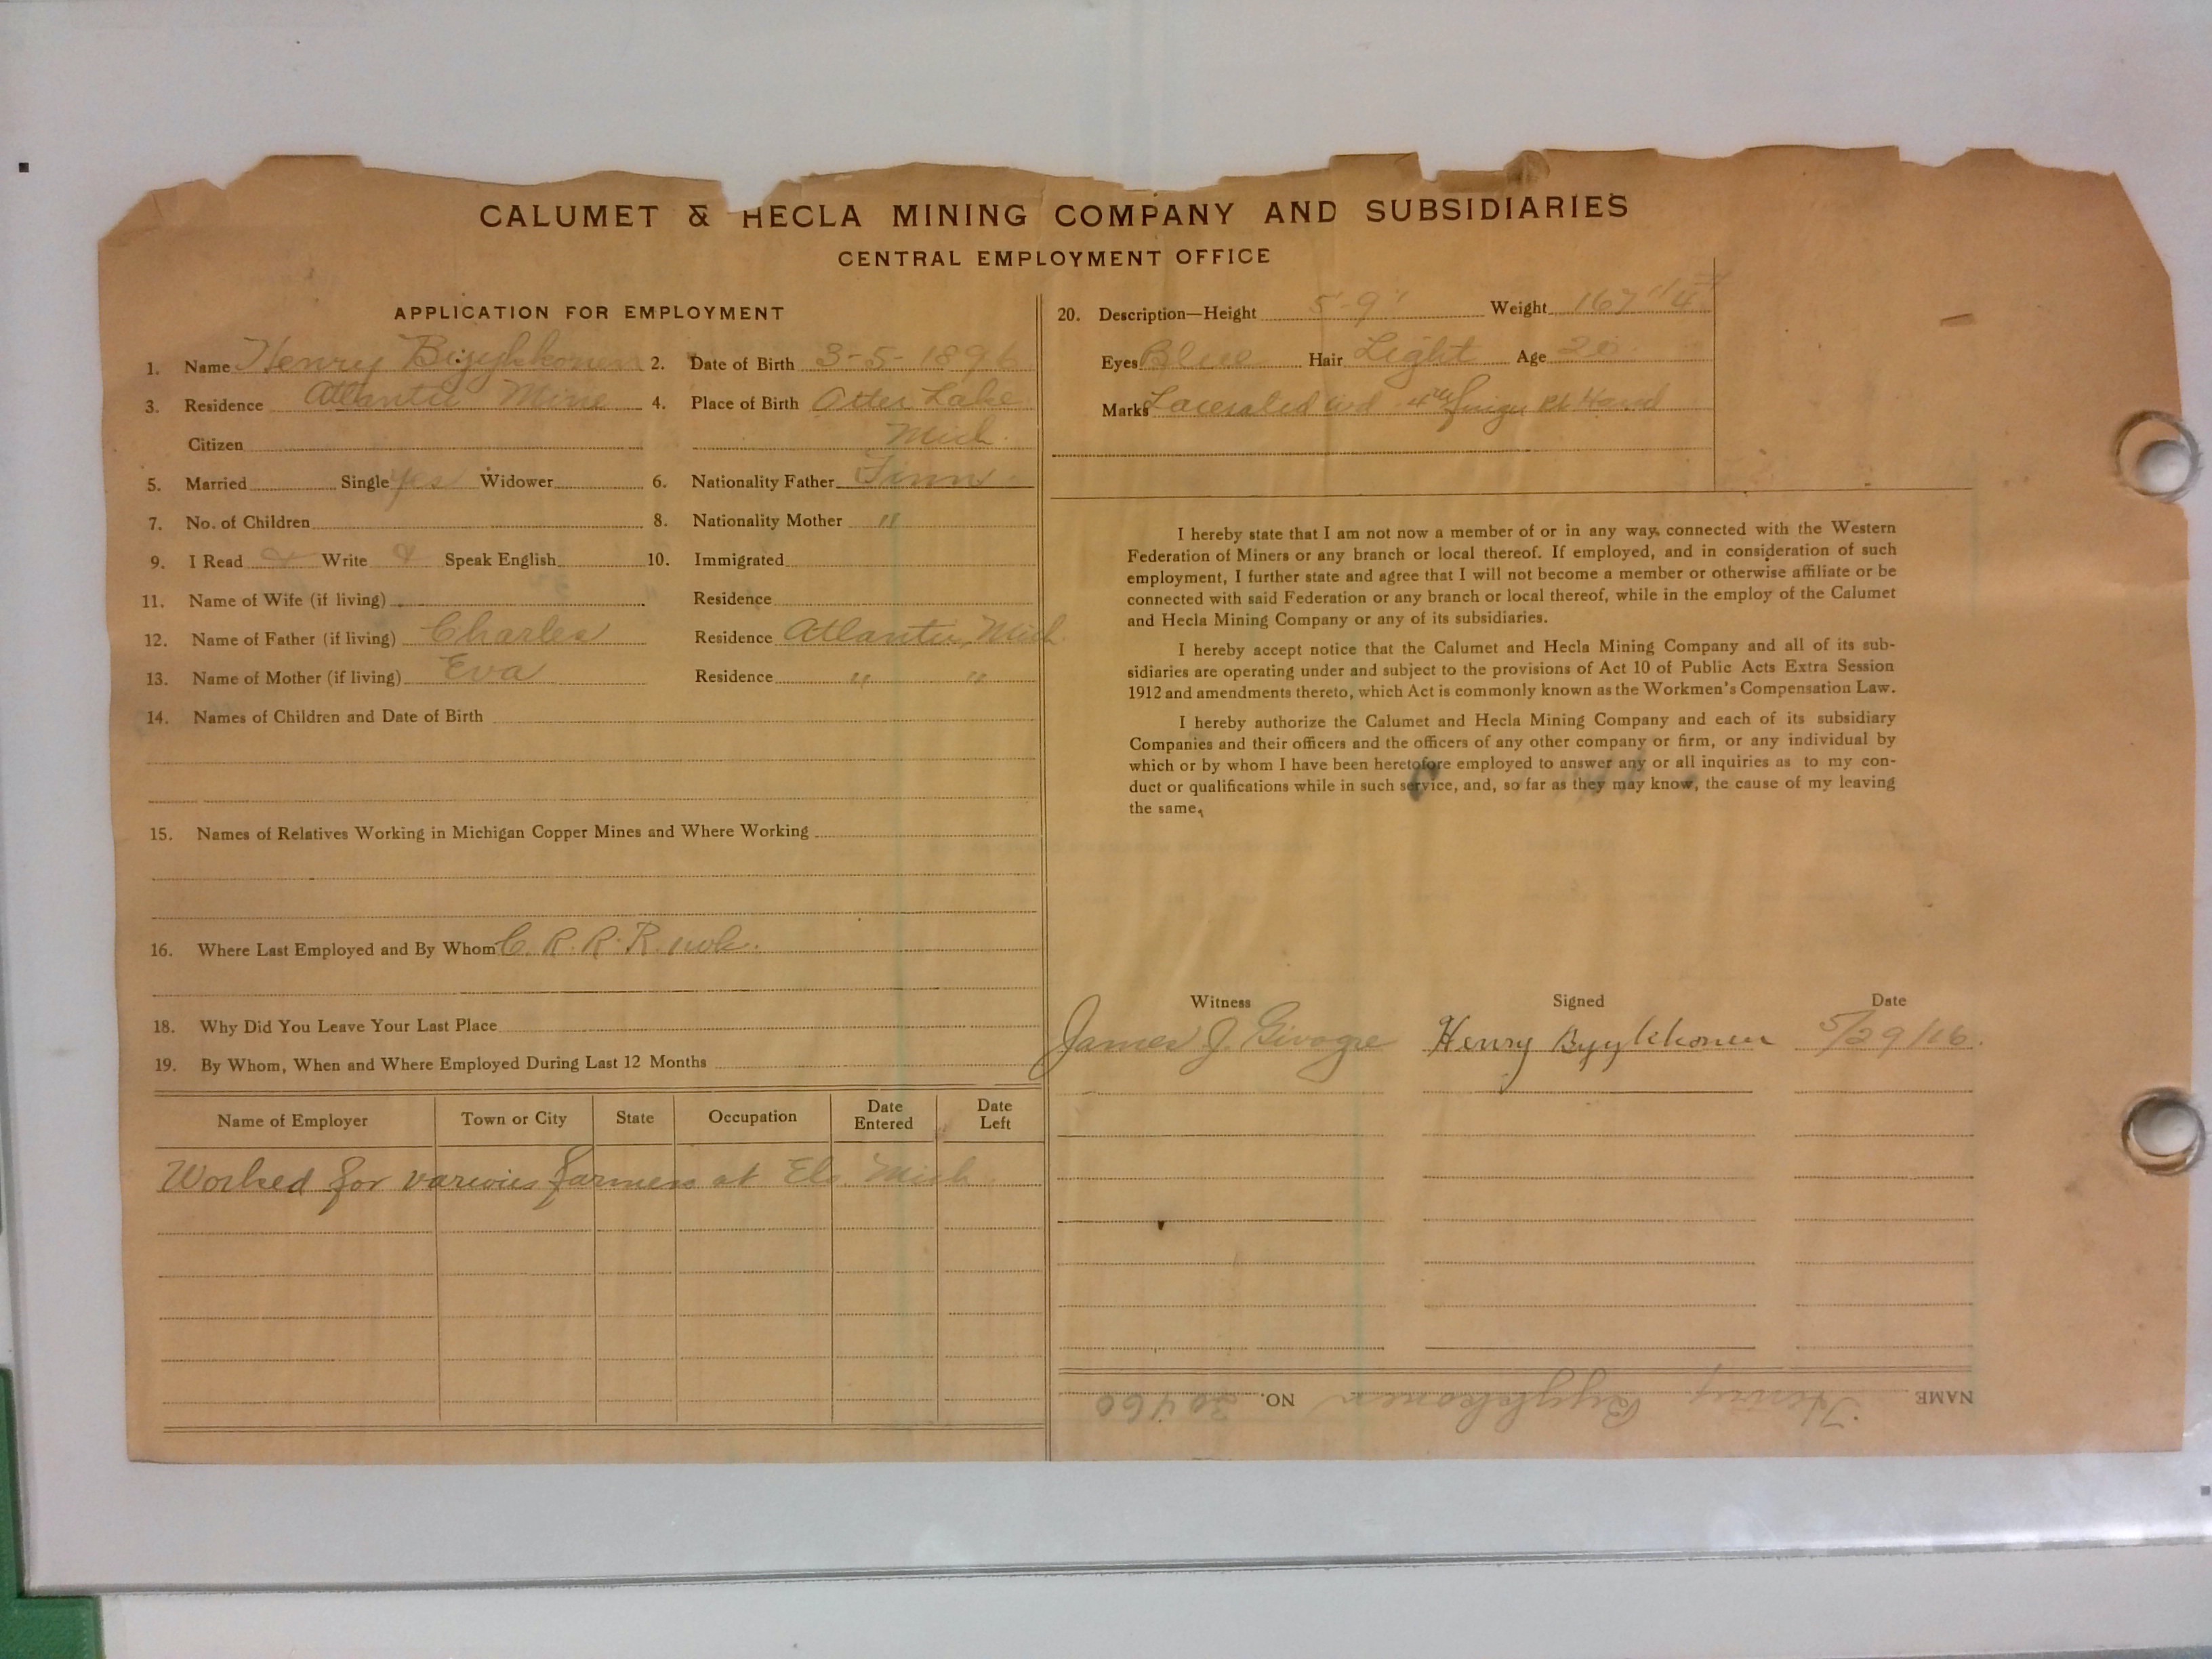 CALUMET & HECLA MINING COMPANY AND SUBSIDIARIES
CENTRAL EMPLOYMENT OFFICE
APPLICATION FOR EMPLOYMENT
1. Name Henry 2. Date of Birth 3-5-1896
3. Residence Atlantic Mine 4. Place of Birth Otter Lake
Citizen Mich.
5. Married Single Yes Widower 6. Nationality Father Finn
7. No. of Children 8. Nationality Mother "
9. I Read & Write & Speak English 10. Immigrated
11. Name of Wife (if living) Residence
12. Name of Father (if living) Charles Residence Atlantic, Mich.
13. Name of Mother (if living) Eva Residence " "
14. Names of Children and Date of Birth
15. Names of Relatives Working in Michigan Copper Mines and Where Working
16. Where Last Employed and By Whom C. R. R. R.
18. Why Did You Leave Your Last Place
19. By Whom, When and Where Employed During Last 12 Months
Name of Employer Town or City State Occupation Date Entered Date Left
Worked for various farmers at Elo Mich
20. Description—Height 5-9" Weight 167
Eyes Blue Hair Light Age 20
Marks Lacerated wd 4th finger Rt Hand
I hereby state that I am not now a member of or in any way connected with the Western
Federation of Miners or any branch or local thereof. If employed, and in consideration of such
employment, I further state and agree that I will not become a member or otherwise affiliate or be
connected with said Federation or any branch or local thereof, while in the employ of the Calumet
and Hecla Mining Company or any of its subsidiaries.
I hereby accept notice that the Calumet and Hecla Mining Company and all of its sub-
sidiaries are operating under and subject to the provisions of Act 10 of Public Acts Extra Session
1912 and amendments thereto, which Act is commonly known as the Workmen's Compensation Law.
I hereby authorize the Calumet and Hecla Mining Company and each of its subsidiary
Companies and their officers and the officers of any other company or firm, or any individual by
which or by whom I have been heretofore employed to answer any or all inquiries as to my con-
duct or qualifications while in such service, and, so far as they may know, the cause of my leaving
the same.
Witness Signed Date
James J. Henry Byykkonen 5/29/16.
NAME Henry Byykkonen NO. 30460